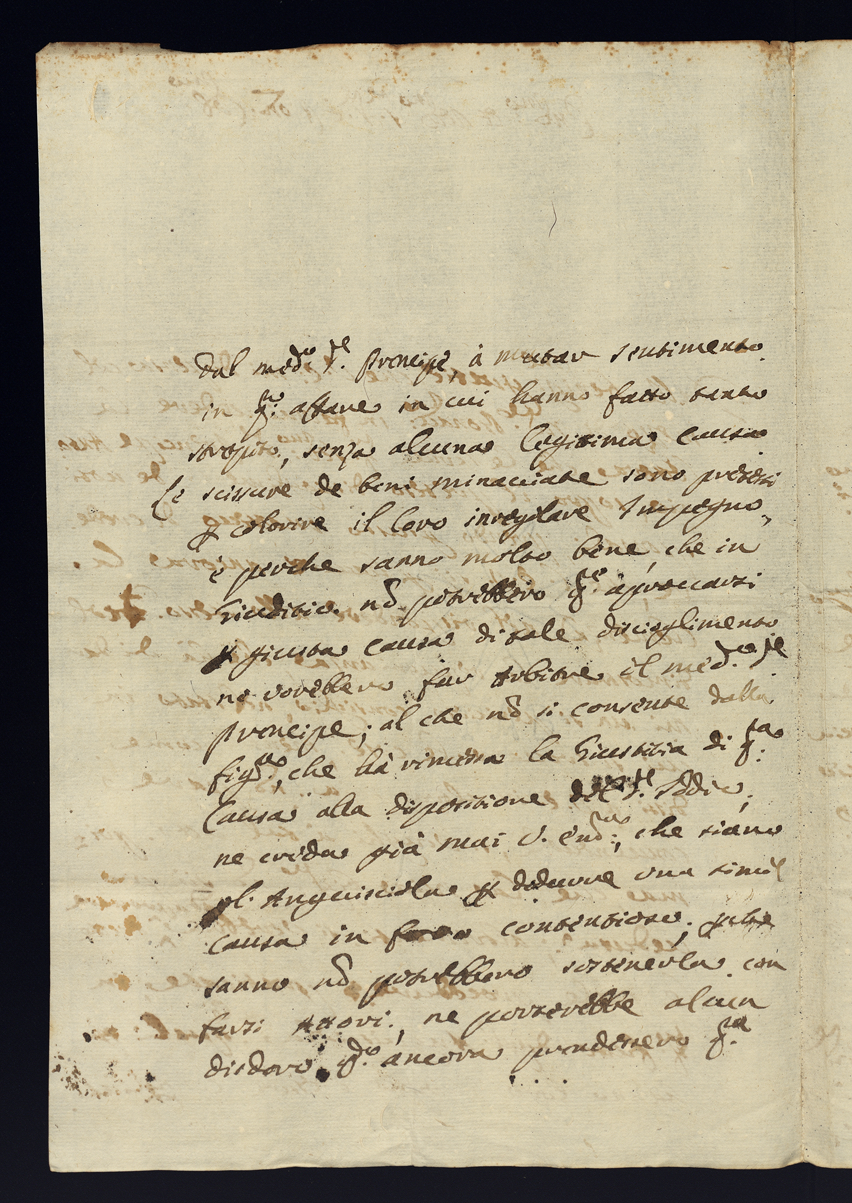 dal med.º S.re Prencipe, à mutar sentimento
in q.to affare in cui hanno fatto tanto
strepito, senza alcuna legitima causa
Le scissure de beni minacciate sono pretesti
p colorire il loro irregolare Impegno,
e perche sanno molto bene, che in
Giuditio nō potrebbero q.te aproccarsi
p giusta causa di tale discioglimento
ne vorebbero far Arbitre il med.º S.re
Prencipe; al che nō si consente dalla
fig.a, che hà rimessa la Giustitia di q.ta
Causa alla dispositione del S.r
ne creda già mai V. che siano
gl. Anguisciola p dedurre una simil
causa in foro contentioso; perche
sanno nō potrebbero sostenerla con
farsi Attori, ne porterebbe alcun
disdoro q.do ancora prendessero q.ta